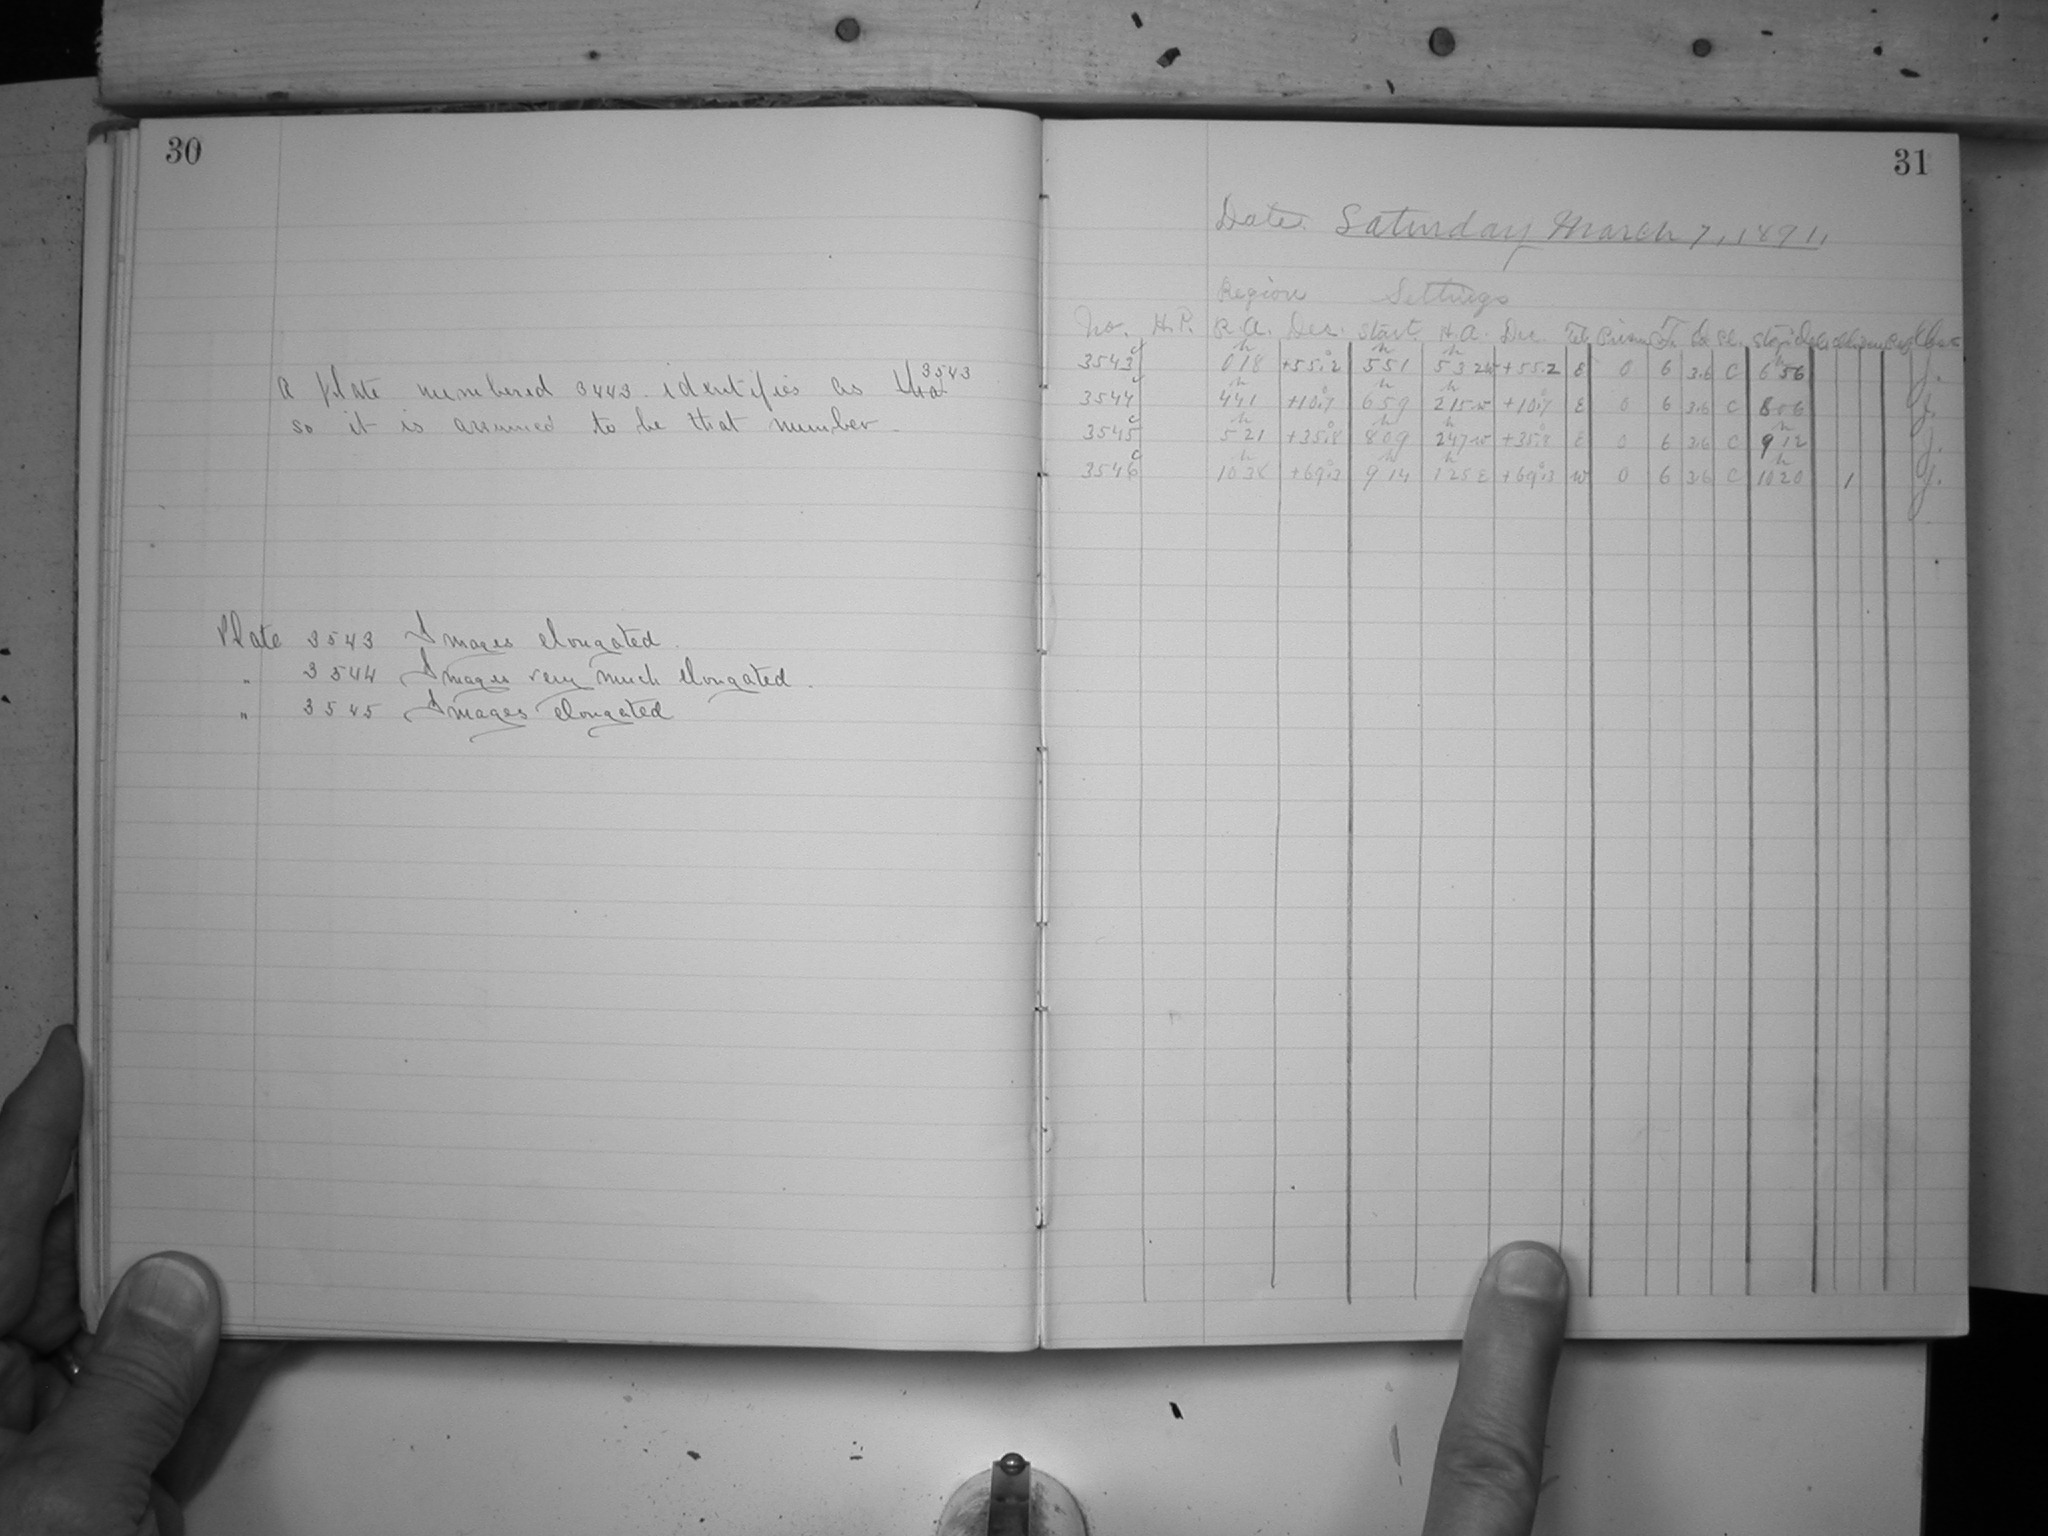 30
A plate numbered 3443 identifies as 3543
so it is assumed to be that number.
Plate 3543 Images elongated.
" 3544 Images very much elongated.
" 3545 Images elongated
31
Date Saturday March 7, 1891,
Region Settings
No. H.P. R.A. Dec. Start. H.A. Dec. Tel Prism Ex. Cl. Stop
3543 c 0h18 +55°.2 5h51 5h32w +55.2 E 0 6 3.6 C 6h56 J.
3544 c 4h41 +10°.7 6h59 2h15w +10°.7 E 0 6 3.6 C 8 06 J.
3545 c 5h21 +35°.8 8h09 2h47w +35°.8 E 0 6 3.6 C 9h12 J.
3546 c 10h38 +69°.3 9h14 1h25E +69°.3 W 0 6 3.6 C 10h20 1 J.